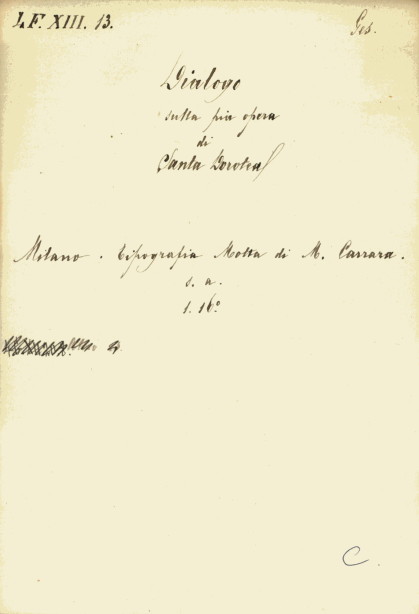 LF. XIII. 13. Ges.
Dialogo
sulla pia opera
di
Santa Dorotea
Milano. Tipografia Motta di M. Carrara.
s. a.
1. 16°
C.